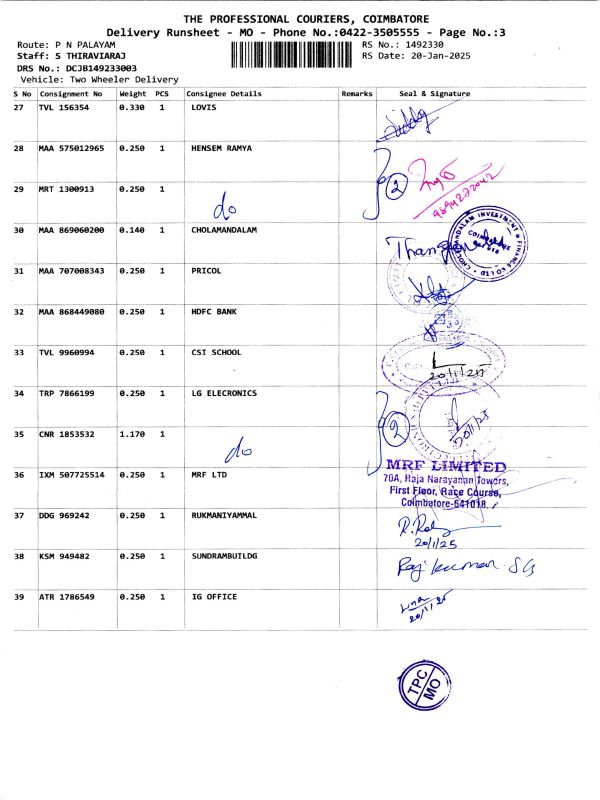 THE PROFESSIONAL COURIERS, COIMBATORE
Delivery Runsheet - MO - Phone No.:0422-3505555 - Page No.:3
Route: P N PALAYAM
RS No.: 1492330
Staff: S THIRAVIARAJ
RS Date: 20-Jan-2025
DRS No.: DCJB149233003
Vehicle: Two Wheeler Delivery
S No Consignment No Weight PCS Consignee Details Remarks Seal & Signature
27 TVL 156354 0.330 1 LOVIS
28 MAA 575012965 0.250 1 HENSEM RAMYA
2
29 MRT 1300913 0.250 1 do
30 MAA 869060200 0.140 1 CHOLAMANDALAM
31 MAA 707008343 0.250 1 PRICOL
32 MAA 868449080 0.250 1 HDFC BANK
33 TVL 9960994 0.250 1 CSI SCHOOL
20/1/25
34 TRP 7866199 0.250 1 LG ELECRONICS
2
20/1/25
35 CNR 1853532 1.170 1 do
36 IXM 507725514 0.250 1 MRF LTD
MRF LIMITED
70A, Raja Narayanan Towers,
First Floor, Race Course,
Coimbatore-641018.
37 DDG 969242 0.250 1 RUKMANIYAMMAL
20/1/25
38 KSM 949482 0.250 1 SUNDRAMBUILDG
Raj kumar SG
39 ATR 1786549 0.250 1 IG OFFICE
20/1/25
TPC
MO